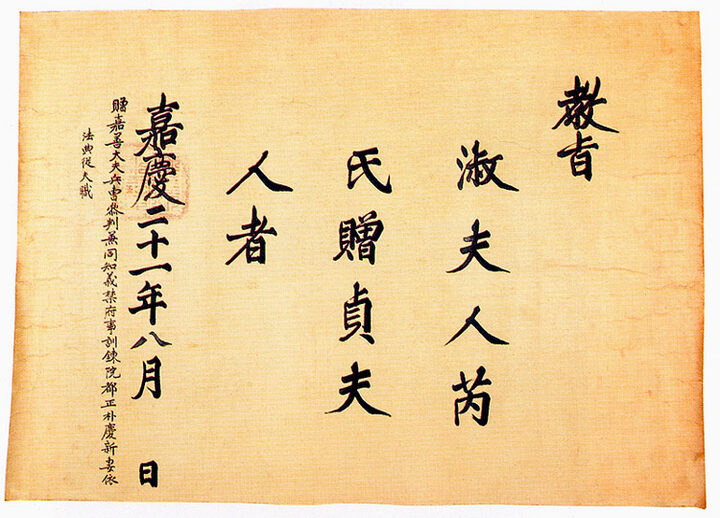 教旨
淑夫人芮
氏贈貞夫
人者
嘉慶二十一年八月 日
贈嘉善大夫兵曹參判兼同知義禁府事訓鍊院都正朴慶新妻依
法典從夫職